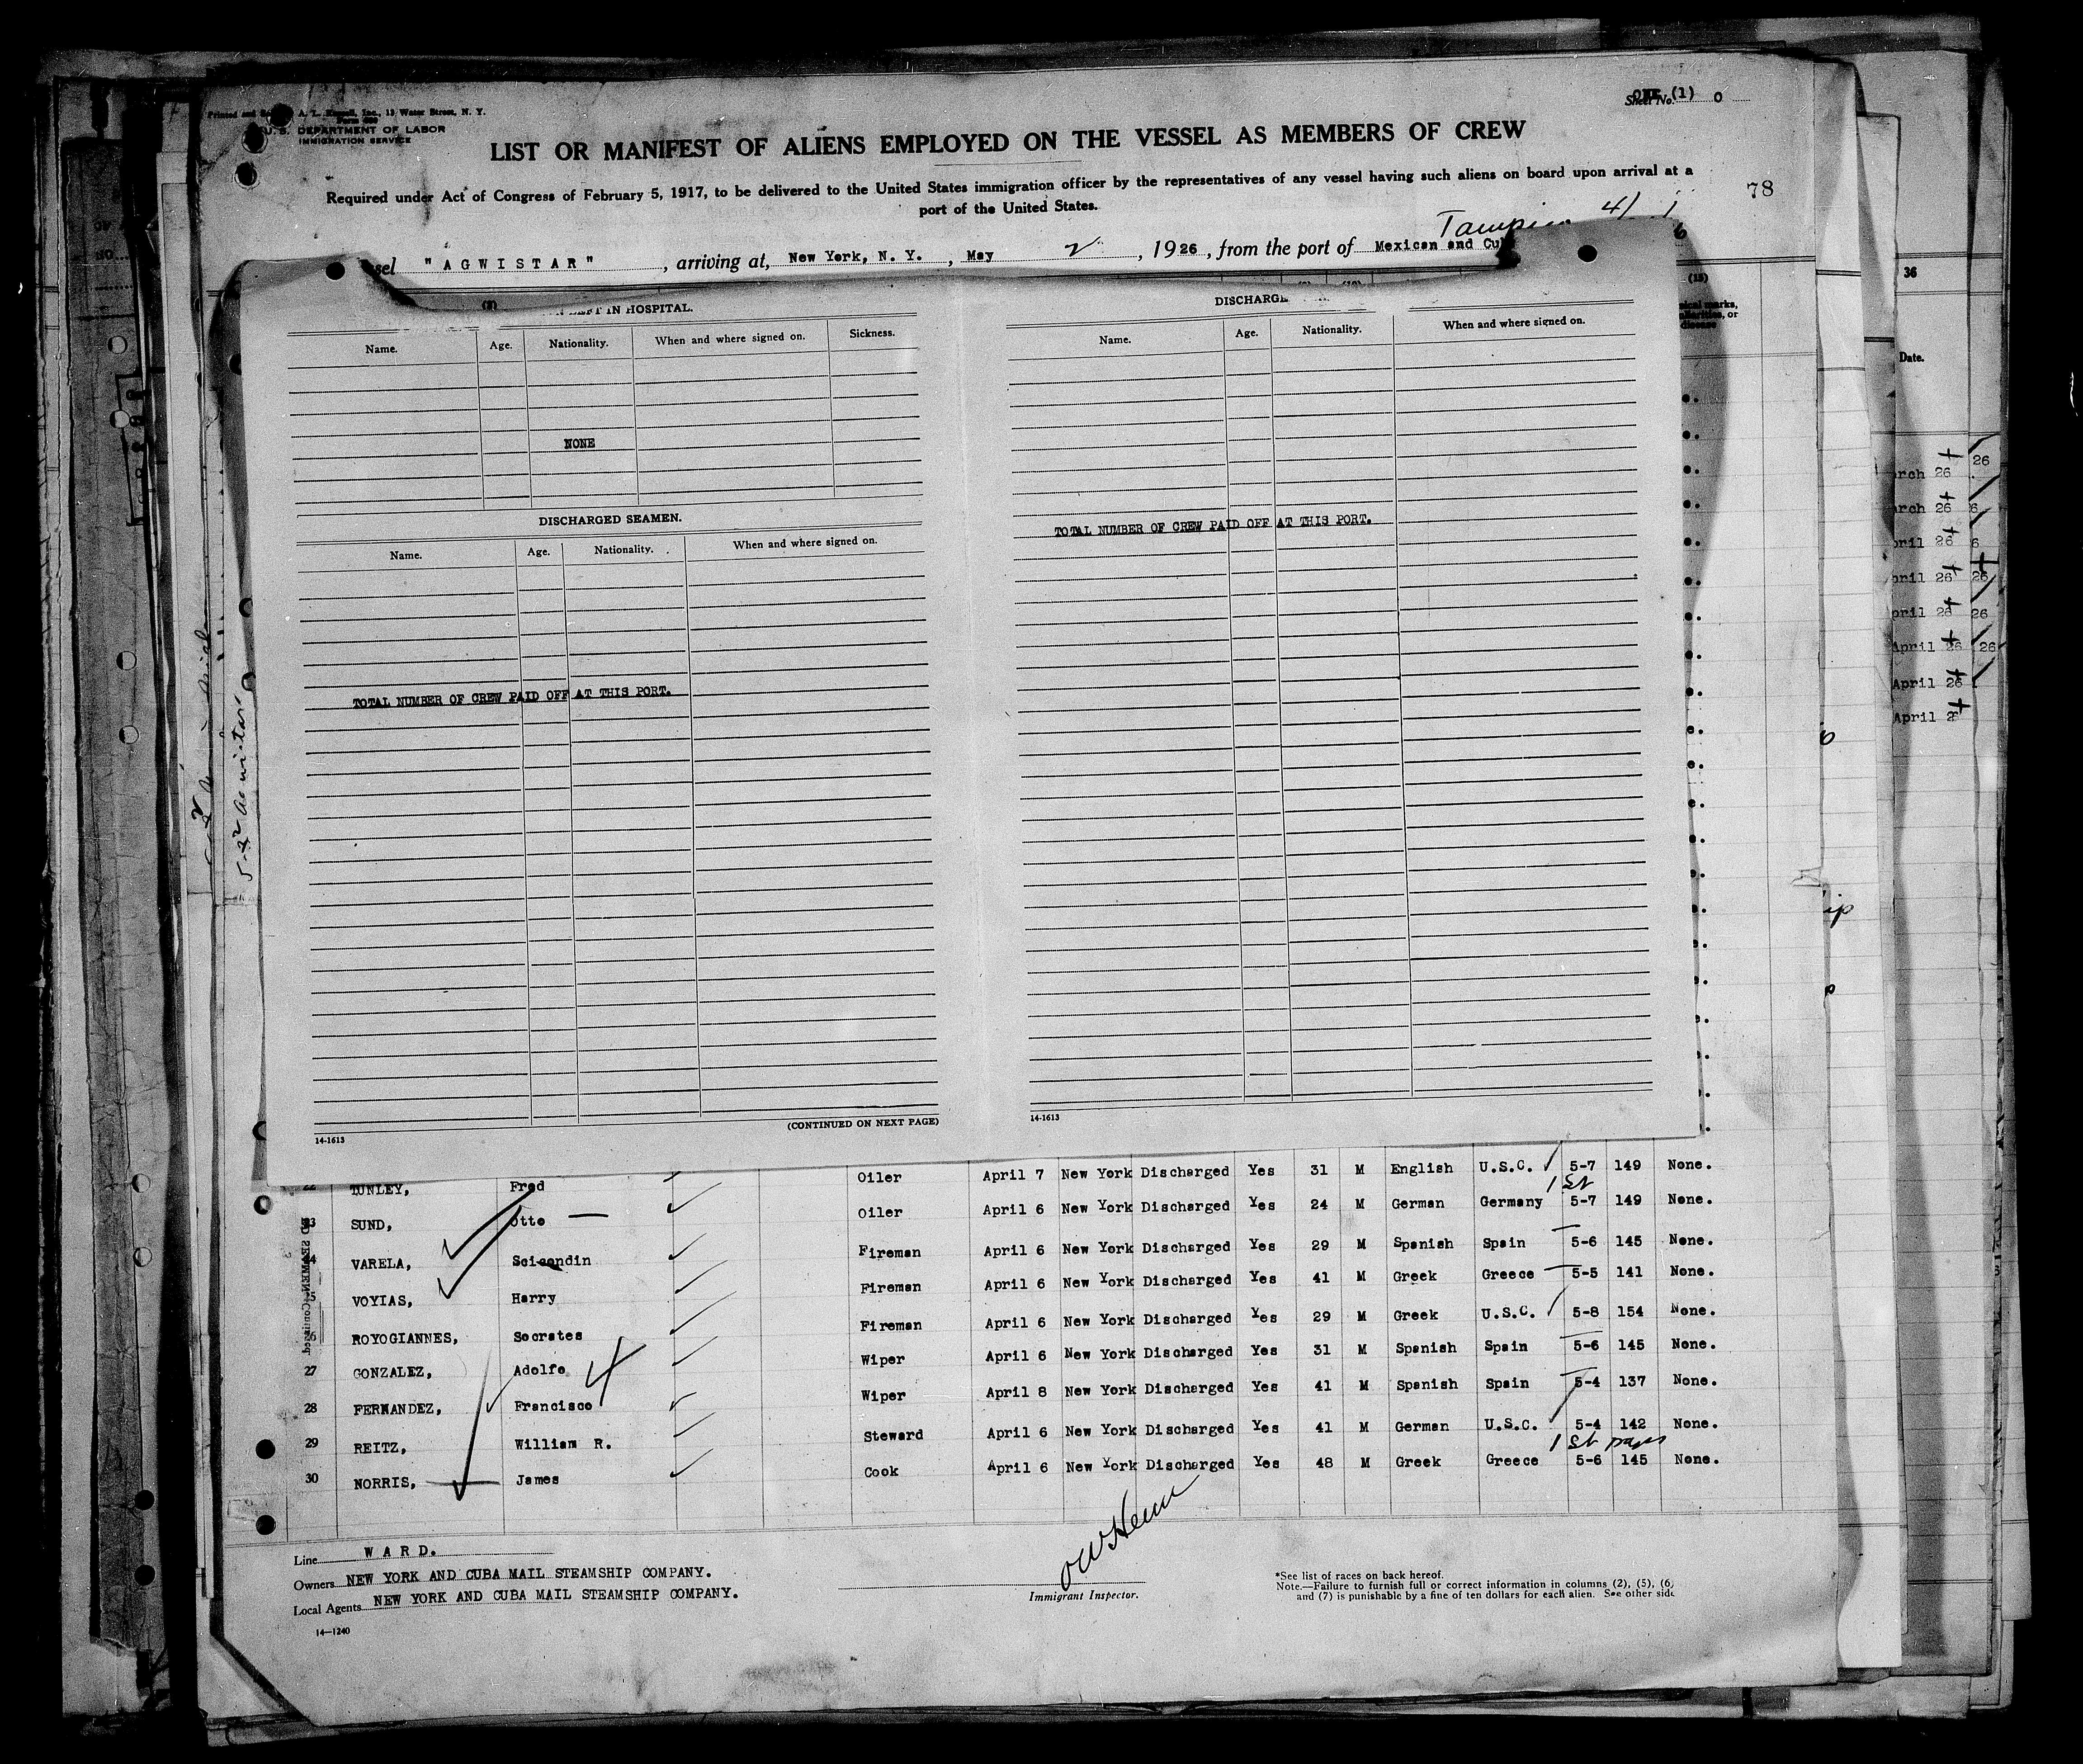 Sheet No. ONE (1)
Printed and A. L. Inc., 13 Water Street, N. Y.
U. S. DEPARTMENT OF LABOR
IMMIGRATION SERVICE
LIST OR MANIFEST OF ALIENS EMPLOYED ON THE VESSEL AS MEMBERS OF CREW
Required under Act of Congress of February 5, 1917, to be delivered to the United States immigration officer by the representatives of any vessel having such aliens on board upon arrival at a
port of the United States.
78
sel "AGWISTAR", arriving at, New York, N. Y., May 2, 1926, from the port of Mexican and Cu
36
IN HOSPITAL.
Name. Age. Nationality. When and where signed on. Sickness.
NONE
DISCHARGED SEAMEN.
Name. Age. Nationality. When and where signed on.
TOTAL NUMBER OF CREW PAID OFF AT THIS PORT.
(CONTINUED ON NEXT PAGE)
14-1613
Name. Age. Nationality. When and where signed on.
TOTAL NUMBER OF CREW PAID OFF AT THIS PORT.
14-1613
(15)
disease
Date.
arch 26
arch 26
pril 26
pril 26
pril 26
April 26
April 26
April 2
22 TUNLEY, Fred Oiler April 7 New York Discharged Yes 31 M English U.S.C. 5-7 149 None.
23 SUND, Otto Oiler April 6 New York Discharged Yes 24 M German Germany 5-7 149 None.
VARELA, Fireman April 6 New York Discharged Yes 29 M Spanish Spain 5-6 145 None.
VOYIAS, Harry Fireman April 6 New York Discharged Yes 41 M Greek Greece 5-5 141 None.
ROYOGIANNES, Socrates Fireman April 6 New York Discharged Yes 29 M Greek U.S.C. 5-8 154 None.
27 GONZALEZ, Adolfo Wiper April 6 New York Discharged Yes 31 M Spanish Spain 5-6 145 None.
28 FERNANDEZ, Francisco Wiper April 8 New York Discharged Yes 41 M Spanish Spain 5-4 137 None.
29 REITZ, William R. Steward April 6 New York Discharged Yes 41 M German U.S.C. 5-4 142 None.
30 NORRIS, James Cook April 6 New York Discharged Yes 48 M Greek Greece 5-6 145 None.
Line WARD.
Owners NEW YORK AND CUBA MAIL STEAMSHIP COMPANY.
Local Agents NEW YORK AND CUBA MAIL STEAMSHIP COMPANY.
14—1240
Immigrant Inspector.
*See list of races on back hereof.
Note.—Failure to furnish full or correct information in columns (2), (5), (6)
and (7) is punishable by a fine of ten dollars for each alien. See other side